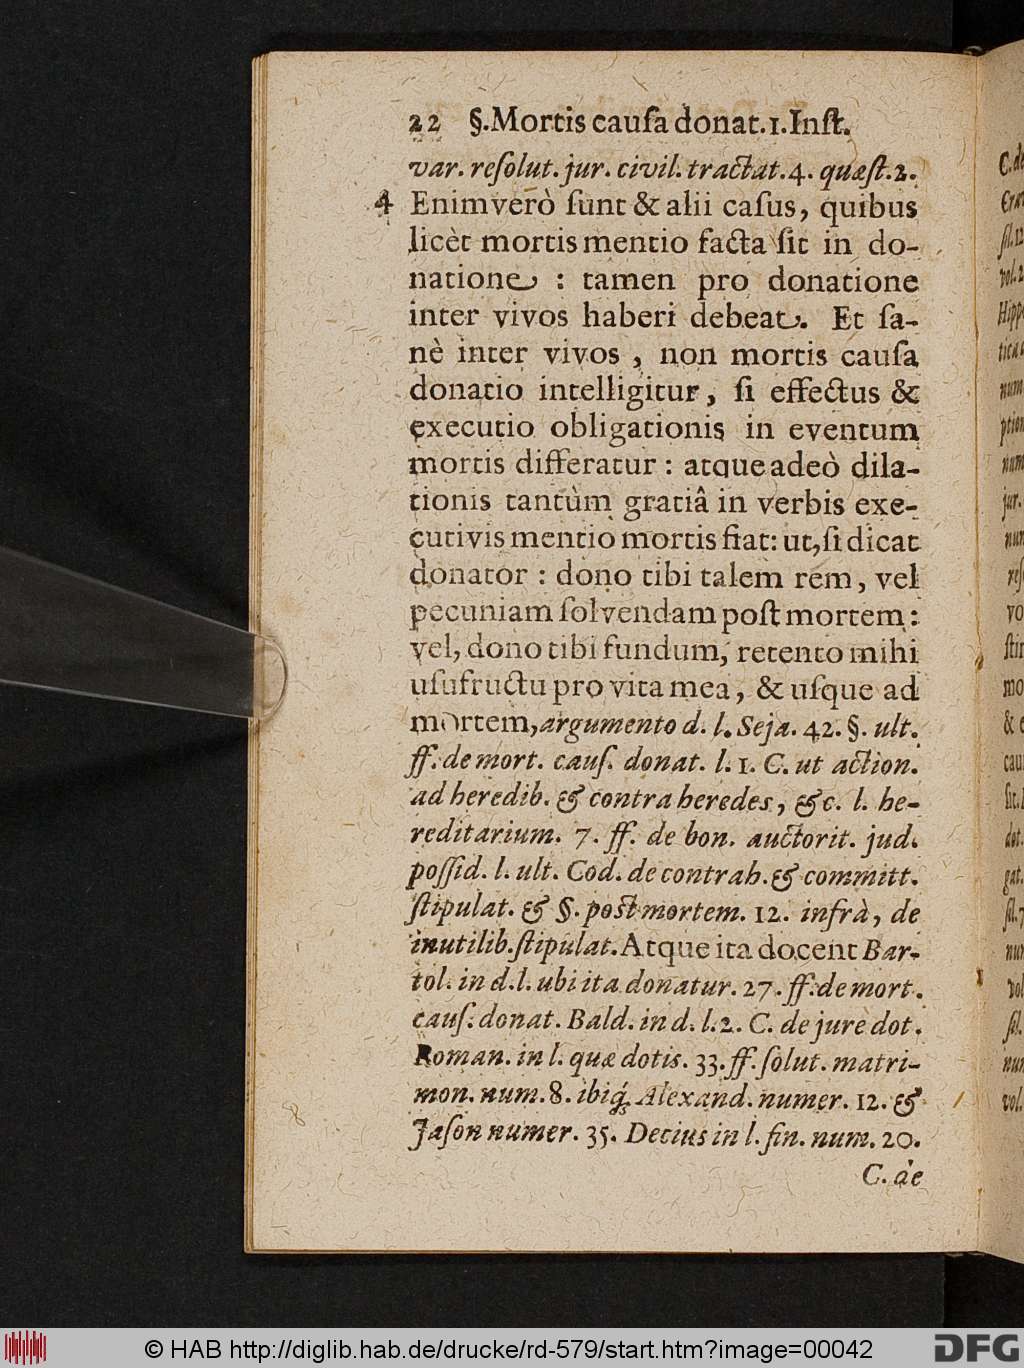 22 §. Mortis causa donat. 1. Inst.
var. resolut. jur. civil. tractat. 4. quæst. 2.
4 Enimverò sunt & alii casus, quibus
licèt mortis mentio facta sit in do-
natione : tamen pro donatione
inter vivos haberi debeat. Et sa-
nè inter vivos, non mortis causa
donatio intelligitur, si effectus &
executio obligationis in eventum
mortis differatur : atque adeò dila-
tionis tantùm gratiâ in verbis exe-
cutivis mentio mortis fiat: ut, si dicat
donator : dono tibi talem rem, vel
pecuniam solvendam post mortem :
vel, dono tibi fundum, retento mihi
usufructu pro vita mea, & usque ad
mortem, argumento d. l. Seja. 42. §. ult.
ff. de mort. caus. donat. l. 1. C. ut action.
ad heredib. & contra heredes, &c. l. he-
reditarium. 7. ff. de bon. auctorit. jud.
possid. l. ult. Cod. de contrah. & committ.
stipulat. & §. post mortem. 12. infrà, de
inutilib. stipulat. Atque ita docent Bar-
tol. in d. l. ubi ita donatur. 27. ff. de mort.
caus. donat. Bald. in d. l. 2. C. de jure dot.
Roman. in l. quæ dotis. 33. ff. solut. matri-
mon. num. 8. ibiq́; Alexand. numer. 12. &
Jason numer. 35. Decius in l. fin. num. 20.
C. de
© HAB http://diglib.hab.de/drucke/rd-579/start.htm?image=00042
DFG